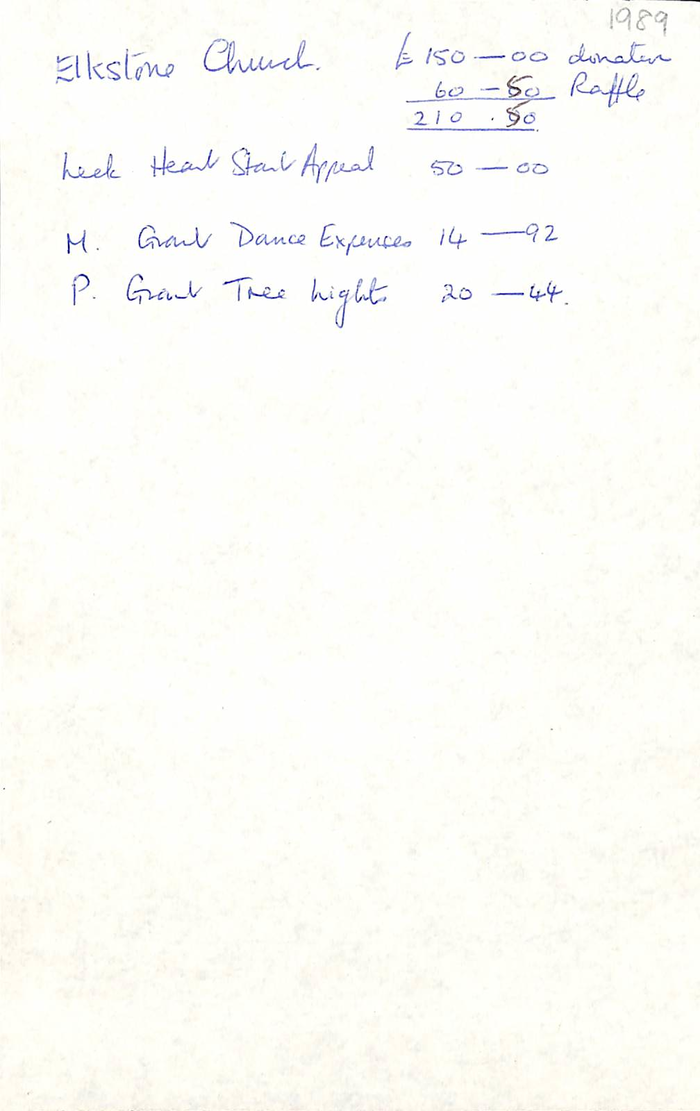 1989
Elkstone Church. £150—00 donation
60—50 Raffle
210.50
Leek Heart Start Appeal 50—00
M. Grant Dance Expenses 14—92
P. Grant Tree Lights 20—44.